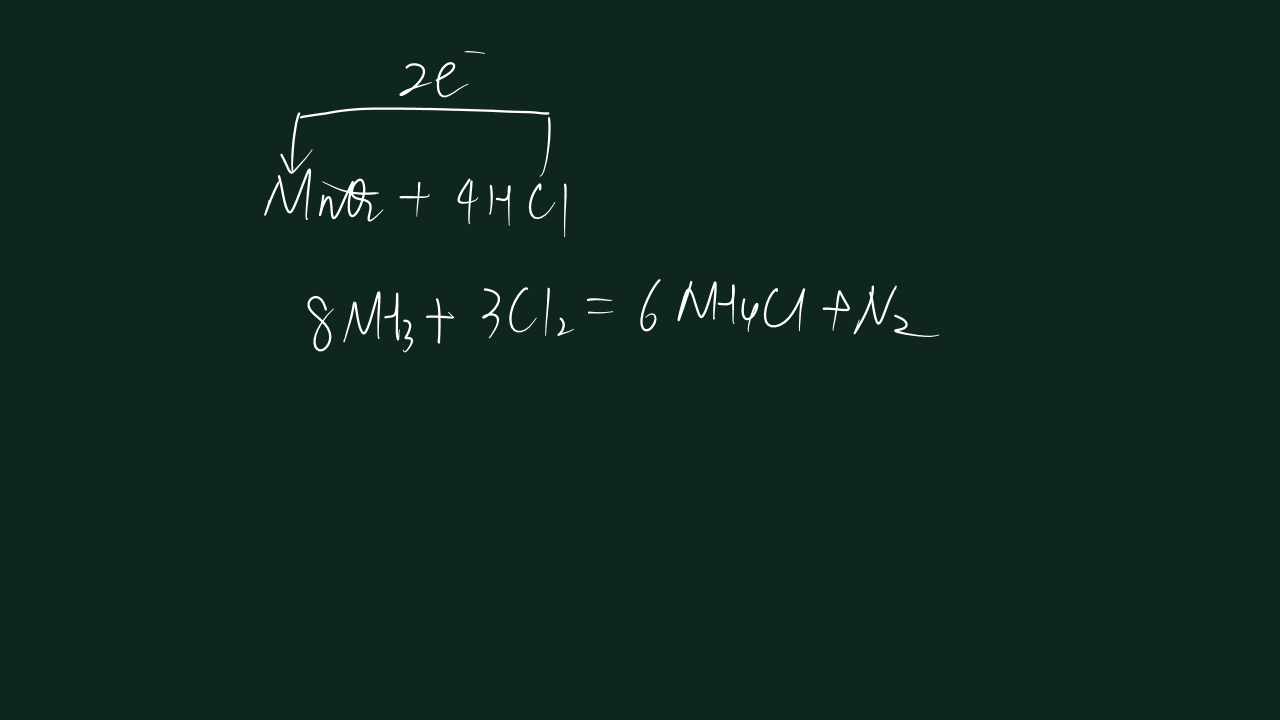 2e⁻
MnO₂ + 4HCl
8NH₃ + 3Cl₂ = 6NH₄Cl + N₂